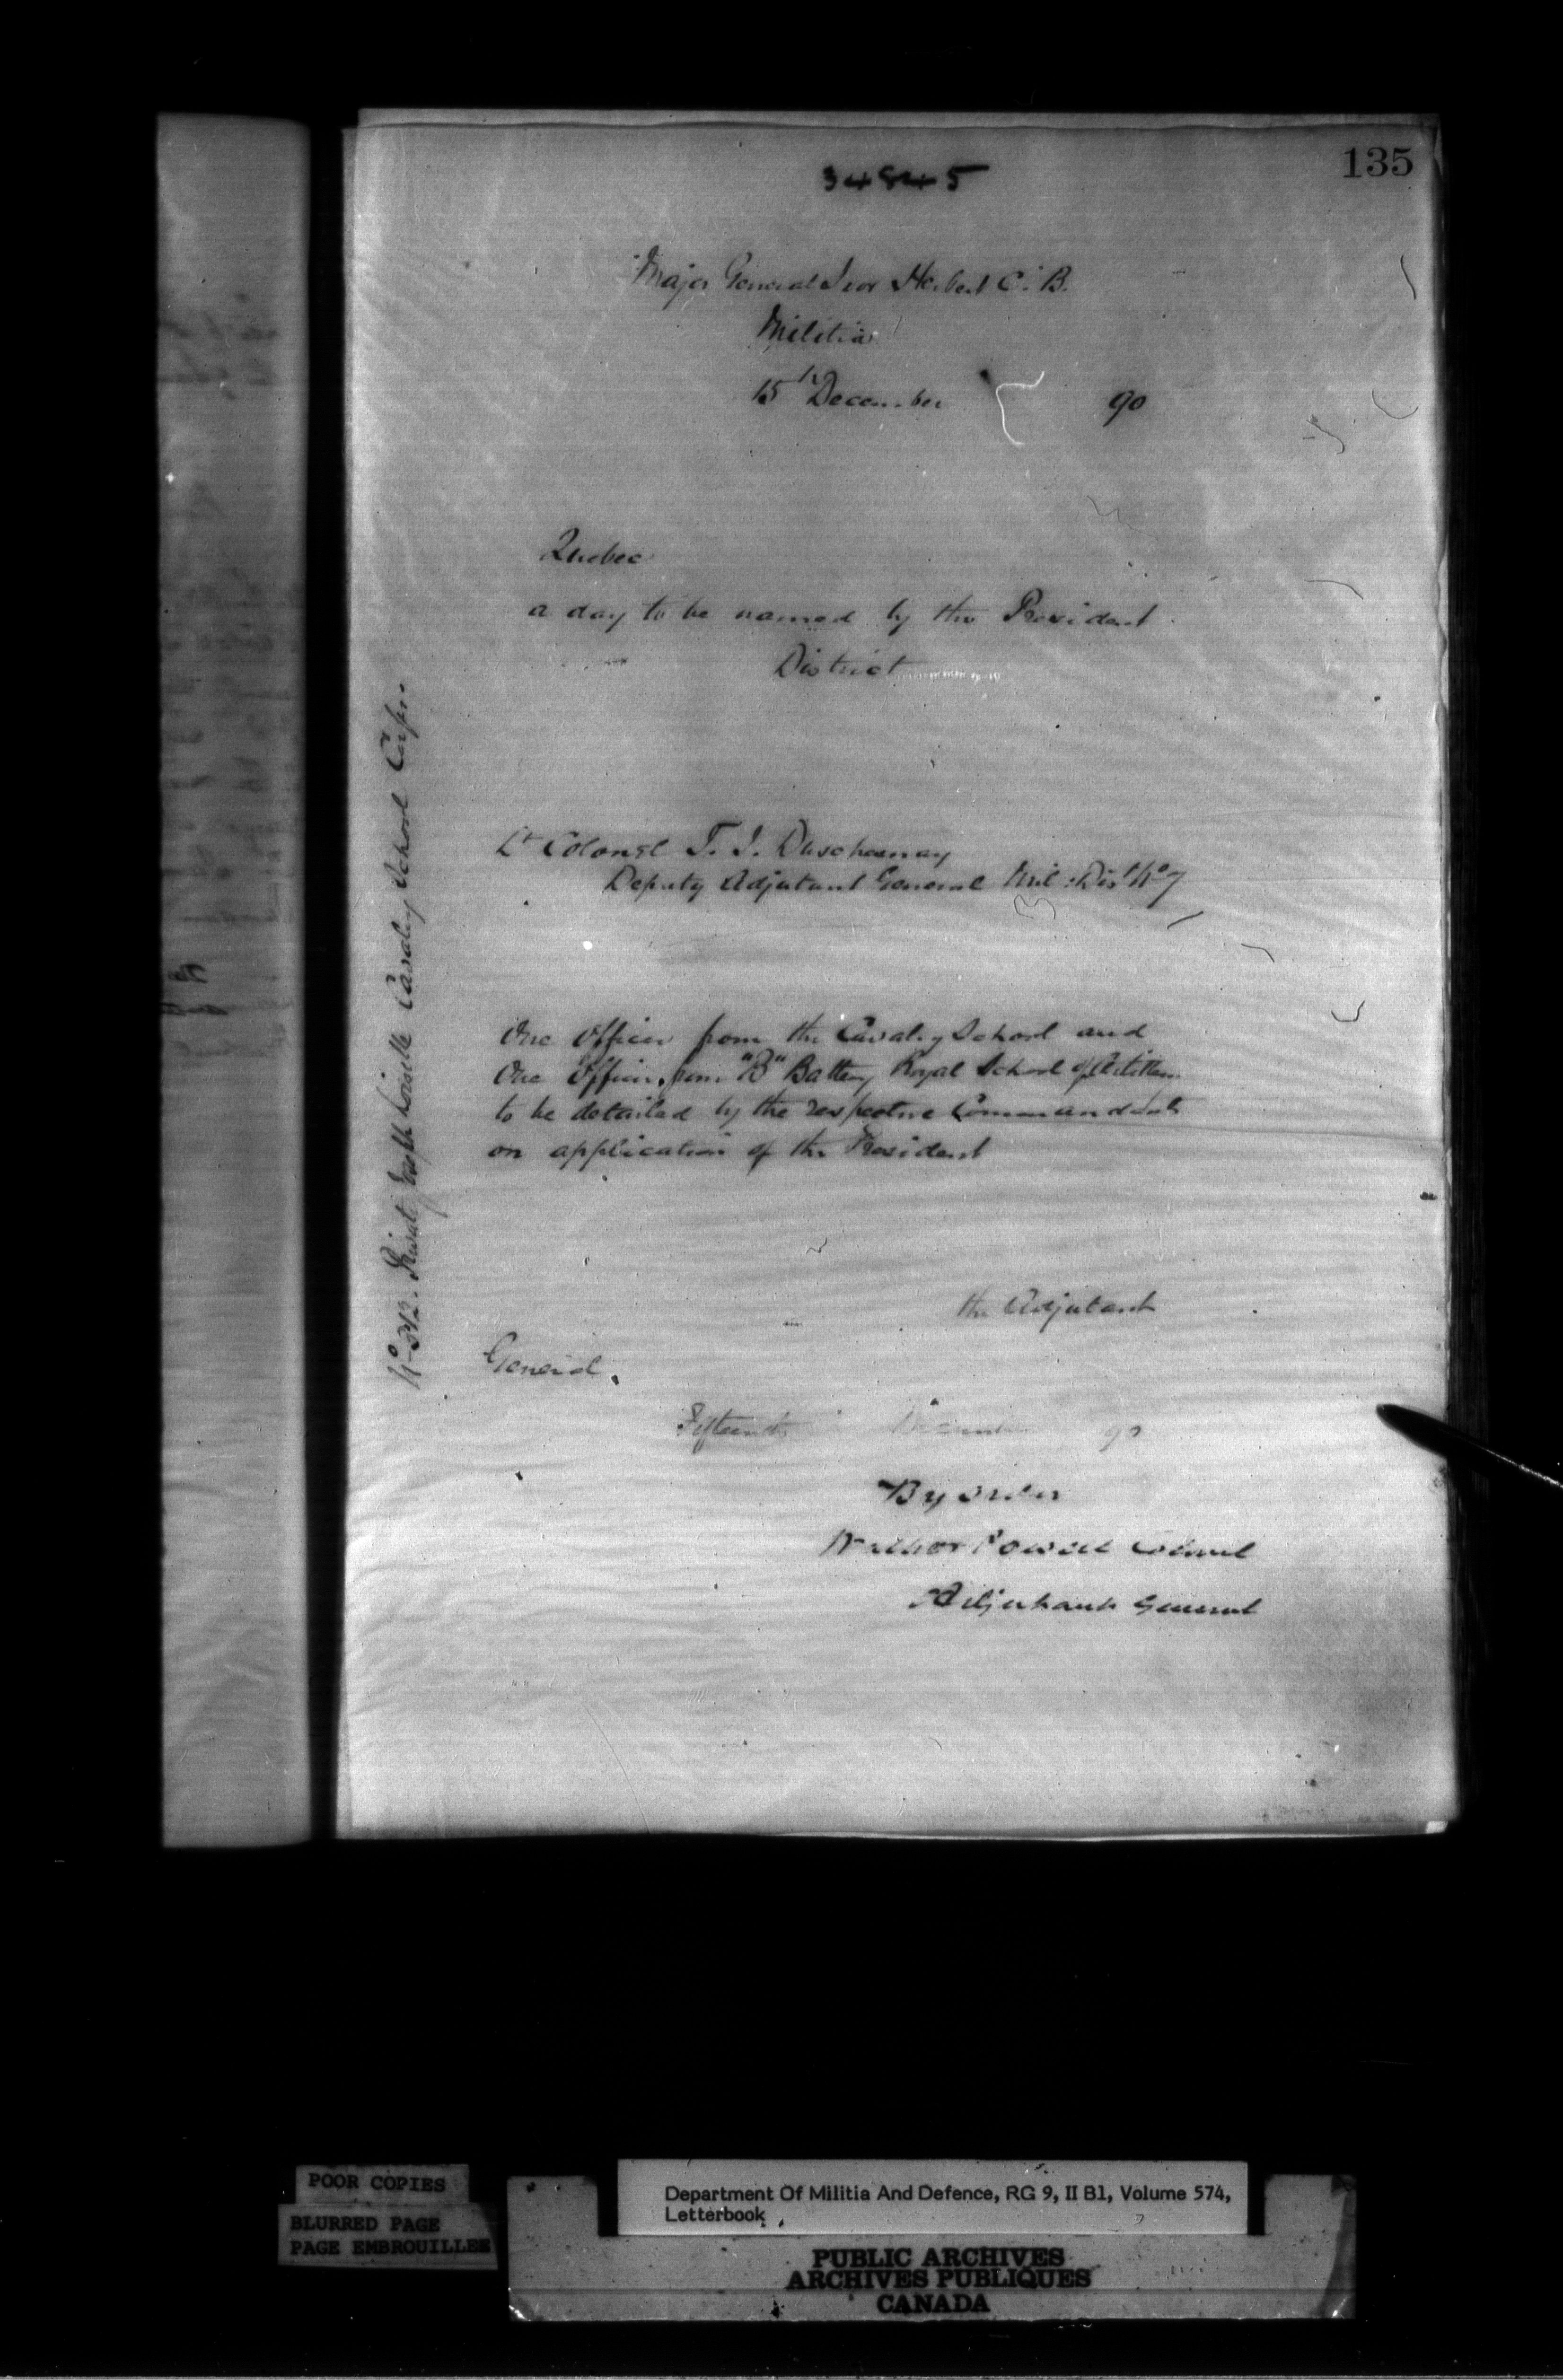 135
34845
Major General Ivor Herbert C. B.
Militia
15th December 90
Quebec
a day to be named by the President
District
Lt Colonel T. J. Duchesnay
Deputy Adjutant General Mil: Dist No 7
One Officer from the Cavalry School and
One Officer from "B" Battery Royal School of Artillery
to be detailed by the respective Commandants
on application of the President
the Adjutant
General.
Fifteenth December 90
By order
Walker Powell Colonel
Adjutant General
No 312. Private Joseph Cavalry School Corps.
POOR COPIES
BLURRED PAGE
PAGE EMBROUILLEE
Department Of Militia And Defence, RG 9, II B1, Volume 574,
Letterbook
PUBLIC ARCHIVES
ARCHIVES PUBLIQUES
CANADA